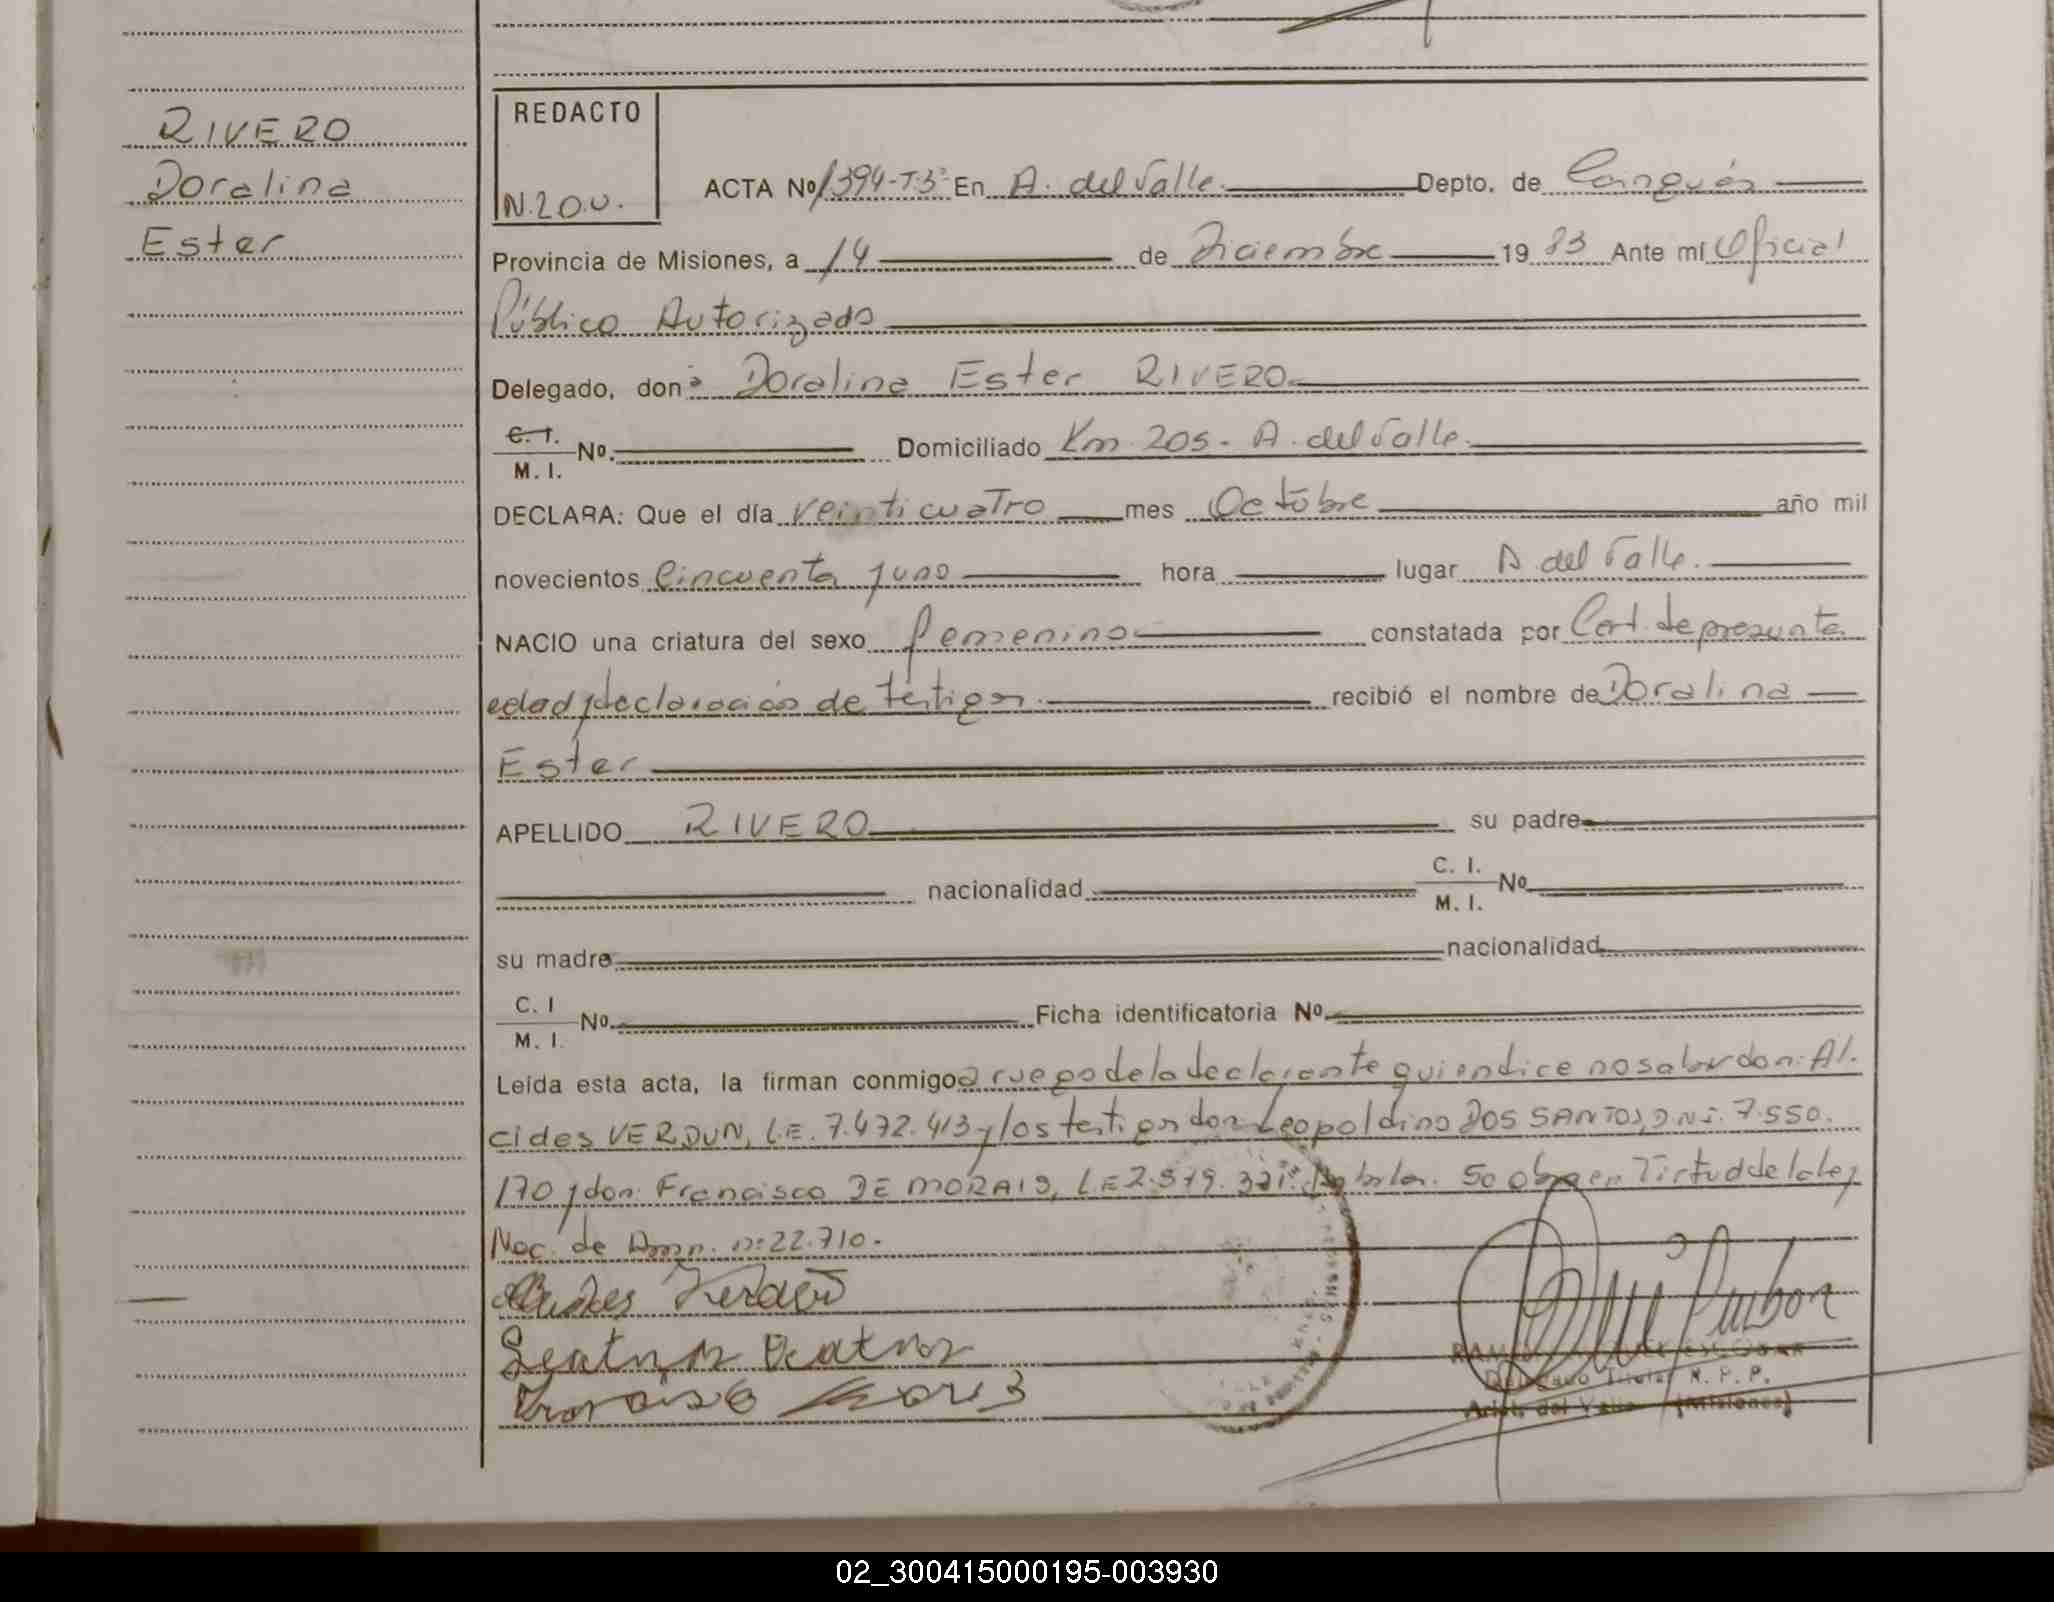 RIVERO
Doralina
Ester
REDACTO
N.20.U.
ACTA Nº 1394-T.3º En A. del Valle. Depto. de Cainguás
Provincia de Misiones, a 14 de Diciembre 19 83 Ante mí Oficial
Público Autorizado
Delegado, don ª Doralina Ester RIVERO
C. I.
M. I. Nº. Domiciliado Km. 205 - A. del Valle.
DECLARA: Que el día veinticuatro mes Octubre año mil
novecientos Cincuenta y uno hora lugar A. del Valle.
NACIO una criatura del sexo femenino constatada por Cert. de presunta
edad y declaración de testigos. recibió el nombre de Doralina
Ester
APELLIDO RIVERO su padre
nacionalidad C. I.
M. I. Nº
su madre nacionalidad
C. I
M. I. Nº. Ficha identificatoria Nº
Leída esta acta, la firman conmigo a ruego de la declarante quien dice no saber don: Al-
cides VERDUN, L.E. 7.472.413 y los testigos don Leopoldino DOS SANTOS, D.N.I. 7.550.
170 y don: Francisco DE MORAIS, L.E 2.579. So obre en Virtud de la Ley
Nac. de Amn. nº 22.710.-
Delegado Titular R. P. P.
Arist. del Valle (Misiones)
02_300415000195-003930